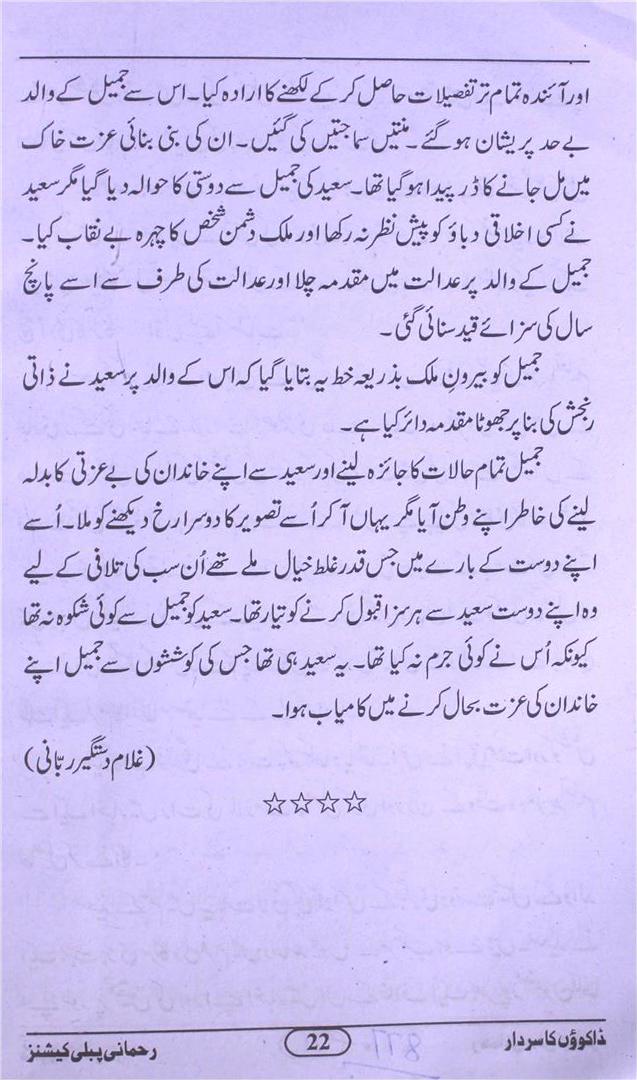 اور آئندہ تمام تر تفصیلات حاصل کر کے لکھنے کا ارادہ کیا۔ اس سے جمیل کے والد
بے حد پریشان ہو گئے۔ منتیں سماجتیں کی گئیں۔ ان کی بنی بنائی عزت خاک
میں مل جانے کا ڈر پیدا ہو گیا تھا۔ سعید کی جمیل سے دوستی کا حوالہ دیا گیا مگر سعید
نے کسی اخلاقی دباؤ کو پیش نظر نہ رکھا اور ملک دشمن شخص کا چہرہ بے نقاب کیا۔
جمیل کے والد پر عدالت میں مقدمہ چلا اور عدالت کی طرف سے اسے پانچ
سال کی سزائے قید سنائی گئی۔
جمیل کو بیرونِ ملک بذریعہ خط یہ بتایا گیا کہ اس کے والد پر سعید نے ذاتی
رنجش کی بنا پر جھوٹا مقدمہ دائر کیا ہے۔
جمیل تمام حالات کا جائزہ لینے اور سعید سے اپنے خاندان کی بے عزتی کا بدلہ
لینے کی خاطر اپنے وطن آیا مگر یہاں آ کر اُسے تصویر کا دوسرا رخ دیکھنے کو ملا۔ اُسے
اپنے دوست کے بارے میں جس قدر غلط خیال ملے تھے اُن سب کی تلافی کے لیے
وہ اپنے دوست سعید سے ہر سزا قبول کرنے کو تیار تھا۔ سعید کو جمیل سے کوئی شکوہ نہ تھا
کیونکہ اُس نے کوئی جرم نہ کیا تھا۔ یہ سعید ہی تھا جس کی کوششوں سے جمیل اپنے
خاندان کی عزت بحال کرنے میں کامیاب ہوا۔
(غلام دستگیر ربّانی)
☆☆☆☆
ڈاکوؤں کا سردار 22 رحمانی پبلی کیشنز